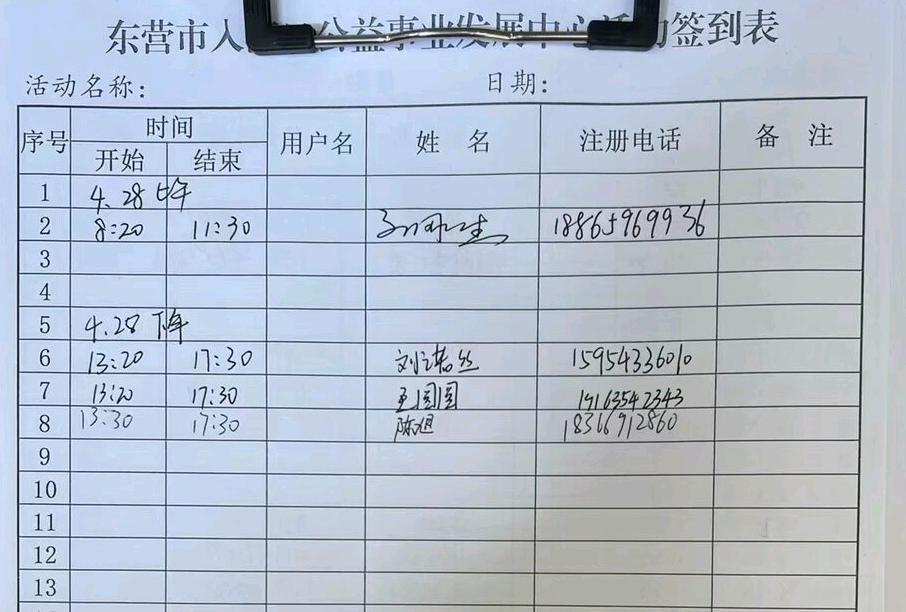 东营市人 公益事业发展中心活动签到表
活动名称: 日期:
序号 时间 用户名 姓 名 注册电话 备 注
开始 结束
1 4.28 上午
2 8:20 11:30 18865969936
3
4
5 4.28 下午
6 13:20 17:30 15954336010
7 13:20 17:30 王圆圆 19163542343
8 13:30 17:30 18366912860
9
10
11
12
13